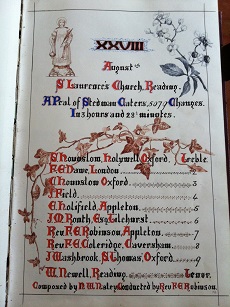 XXVIII
August
S. Laurence's Church, Reading.
A Peal of Stedman Caters, 5079 Changes.
In 3 hours and 22½ minutes.
S. Hounslow, Holywell Oxford. Treble.
F. E. Dawe, London 2
C. Hounslow Oxford 3
J. Field 4
E. Holifield, Appleton 5
J. M. Routh, Esq. Tilehurst 6
Rev. F. E. Robinson, Appleton, 7
Rev. F. E. Coleridge, Caversham. 8
J. Washbrook, S. Thomas', Oxford. 9
W. Newell, Reading Tenor.
Composed by Conducted by Rev. F. E. Robinson.